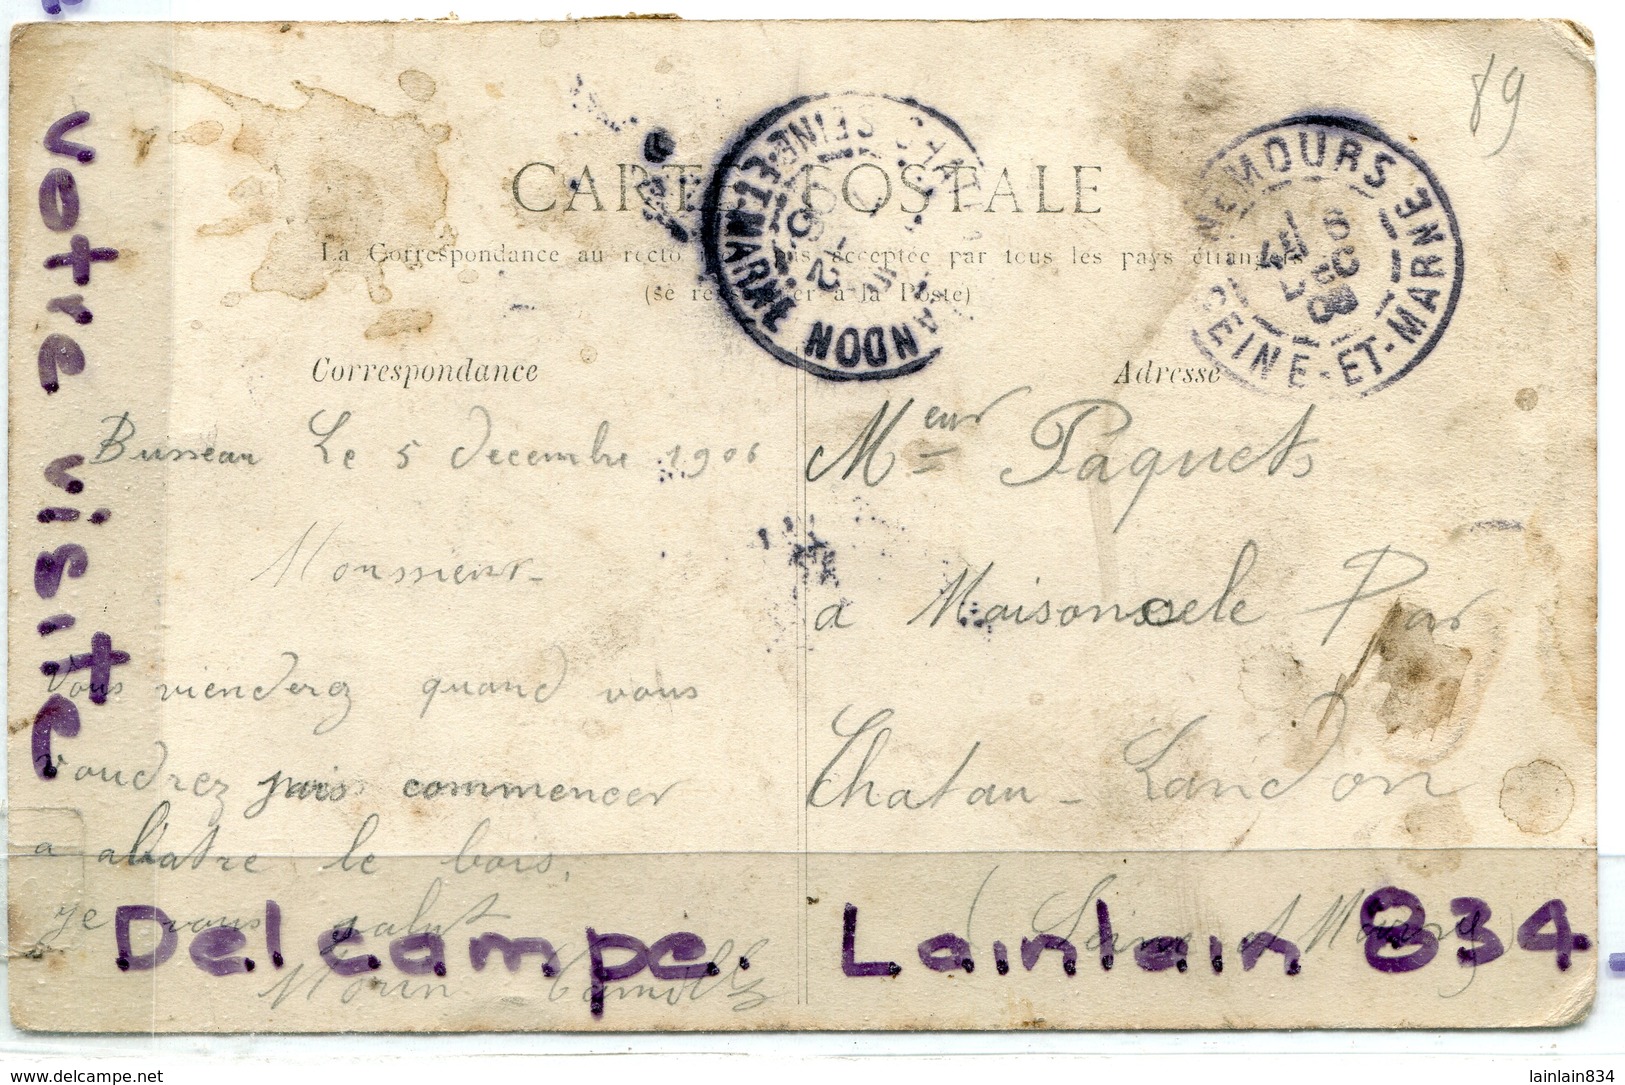 89
CARTE POSTALE
La Correspondance au recto pas acceptée par tous les pays étrangers
(se renseigner à la Poste)
CHATEAU-LANDON
SEINE-ET-MARNE
13
NEMOURS
SEINE-ET-MARNE
Correspondance
Busseau Le 5 decembre 1906
Monsieur
Vous vienderez quand vous
voudrez pais commencer
a abatre le bois,
je vous salut
Morin Camille
Adresse
Meur Paquets
a Maisoncele Par
Chatau - Landon
(Seine et Marne)
Votre visite.
Delcampe. Lainlain 834
www.delcampe.net
lainlain834